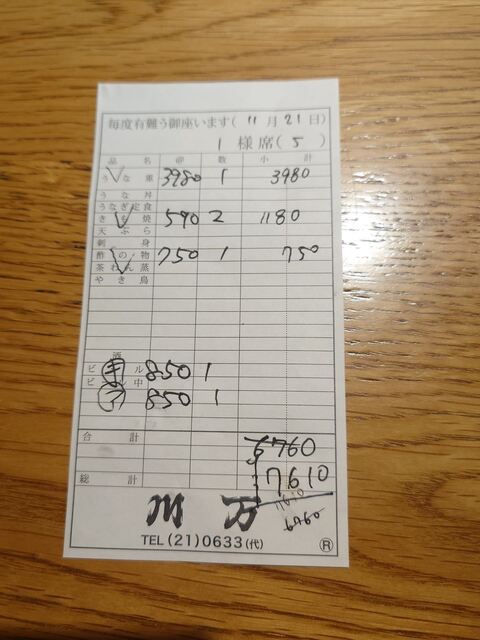 毎度有難う御座います(11月21日)
1 様席(5)
品名 @ 数 小計
うな重 3980 1 3980
うな丼
うなぎ定食
きも焼 590 2 1180
天ぷら
刺身
酢の物 750 1 750
茶わん蒸
やき鳥
酒
ビール 850 1
ビール中
850 1
合計 6760
総計 7610
7610
6760
TEL(21)0633(代) Ⓡ